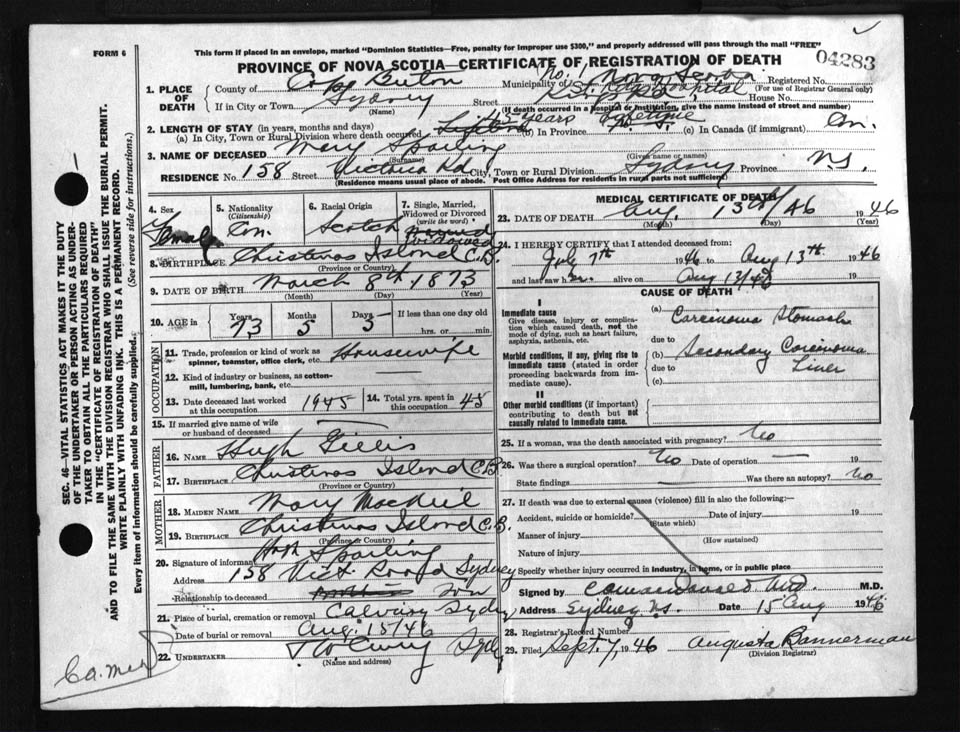 FORM 6
This form if placed in an envelope, marked "Dominion Statistics—Free, penalty for improper use $300," and properly addressed will pass through the mail "FREE"
PROVINCE OF NOVA SCOTIA—CERTIFICATE OF REGISTRATION OF DEATH
04283
1. PLACE OF DEATH
County of Cape Breton
Municipality of No. 1 Nova Scotia
Registered No.
(For use of Registrar General only)
If in City or Town Sydney Street Hospital House No.
(Name)
(If death occurred in a Hospital or Institution, give the name instead of street and number)
2. LENGTH OF STAY (in years, months and days)
(a) In City, Town or Rural Division where death occurred 42 years (b) In Province Lifetime (c) In Canada (if immigrant) Cn.
3. NAME OF DECEASED Mary Sparling
(Surname) (Given name or names)
RESIDENCE No. 158 Street Victoria Rd City, Town or Rural Division Sydney Province N.S.
(Residence means usual place of abode. Post Office Address for residents in rural parts not sufficient)
4. Sex Female
5. Nationality (Citizenship) Cn.
6. Racial Origin Scotch
7. Single, Married, Widowed or Divorced (write the word) widowed
8. BIRTHPLACE Christmas Island C.B.
(Province or Country)
9. DATE OF BIRTH March 8th 1873
(Month) (Day) (Year)
10. AGE in Years 73 Months 5 Days 5 If less than one day old hrs. or min.
OCCUPATION
11. Trade, profession or kind of work as spinner, teamster, office clerk, etc. Housewife
12. Kind of industry or business, as cotton-mill, lumbering, bank, etc.
13. Date deceased last worked at this occupation 1945
14. Total yrs. spent in this occupation 45
15. If married give name of wife or husband of deceased
FATHER
16. NAME Hugh Gillis
17. BIRTHPLACE Christmas Island C.B.
(Province or Country)
MOTHER
18. MAIDEN NAME Mary MacNeil
19. BIRTHPLACE Christmas Island C.B.
(Province or Country)
20. Signature of informant Hugh Sparling
Address 158 Vict. Road Sydney
Relationship to deceased Son
21. Place of burial, cremation or removal Calvary Sydney
Date of burial or removal Aug. 15/46
22. UNDERTAKER T W Curry Syd
(Name and address)
MEDICAL CERTIFICATE OF DEATH
23. DATE OF DEATH Aug. 13th/46 1946
(Month) (Day)
24. I HEREBY CERTIFY that I attended deceased from:
July 7th 1946 to Aug 13th 1946
and last saw h er alive on Aug 13/46 19
CAUSE OF DEATH
I
Immediate cause
Give disease, injury or complication which caused death, not the mode of dying, such as heart failure, asphyxia, asthenia, etc.
(a) Carcinoma Stomach
due to
Morbid conditions, if any, giving rise to immediate cause (stated in order proceeding backwards from immediate cause).
(b) Secondary Carcinoma Liver
due to
(c)
II
Other morbid conditions (if important) contributing to death but not causally related to immediate cause.
25. If a woman, was the death associated with pregnancy? No
26. Was there a surgical operation? No Date of operation — 19
State findings — Was there an autopsy? No
27. If death was due to external causes (violence) fill in also the following:—
Accident, suicide or homicide? Date of injury 19
(State which)
Manner of injury
(How sustained)
Nature of injury
Specify whether injury occurred in industry, in home, or in public place
Signed by M.D.
Address Sydney N.S. Date 15 Aug 1946
28. Registrar's Record Number
29. Filed Sept. 7, 1946 Augusta Bannerman
(Division Registrar)
SEC. 46—VITAL STATISTICS ACT MAKES IT THE DUTY OF THE UNDERTAKER OR PERSON ACTING AS UNDERTAKER TO OBTAIN ALL THE PARTICULARS REQUIRED IN THE "CERTIFICATE OF REGISTRATION OF DEATH" AND TO FILE THE SAME WITH THE DIVISION REGISTRAR WHO SHALL ISSUE THE BURIAL PERMIT.
WRITE PLAINLY WITH UNFADING INK. THIS IS A PERMANENT RECORD.
Every item of information should be carefully supplied. (See reverse side for instructions.)